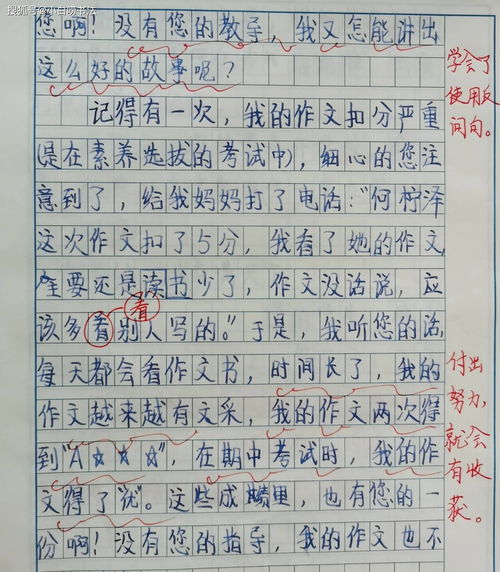 搜狐号@小白明书法
您啊！没有您的教导，我又怎能讲出
这么好的故事呢？
学会了
使用反
问句。
记得有一次，我的作文扣分严重
(是在素养选拔的考试中)，细心的您注
意到了，给我妈妈打了电话：“何柠泽
这次作文扣了5分，我看了她的作文，
主要还是读书少了，作文没话说，应
看
该多看别人写的。”于是，我听您的话，
每天都会看作文书，时间长了，我的
作文越来越有文采，我的作文两次得
到“A☆☆☆”，在期中考试时，我的作
文得了“优”。这些成绩里，也有您的一
份啊！没有您的指导，我的作文也不
付出
努力，
就会
有收
获。